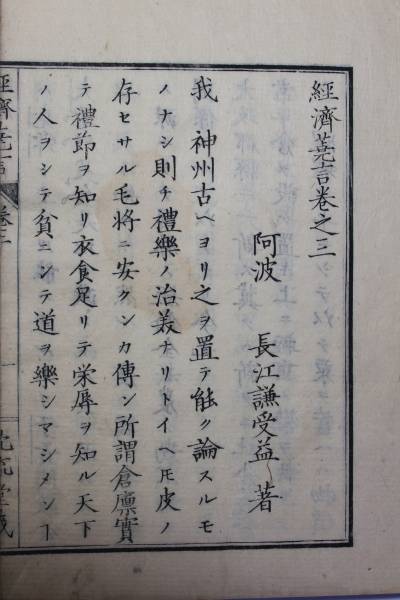 經濟蕘言卷之三
阿波 長江謙受益著
我 神州古ヘヨリ之ヲ置テ能ク論スルモ
ノナシ則チ禮樂ノ治義ナリトイヘ𪜈皮ノ
存セサル毛將ニ安クンカ傳ン所謂倉廩實
テ禮節ヲ知リ衣食足リテ栄辱ヲ知ル天下
ノ人ヲシテ貧ニシテ道ヲ樂シマシメンヿ